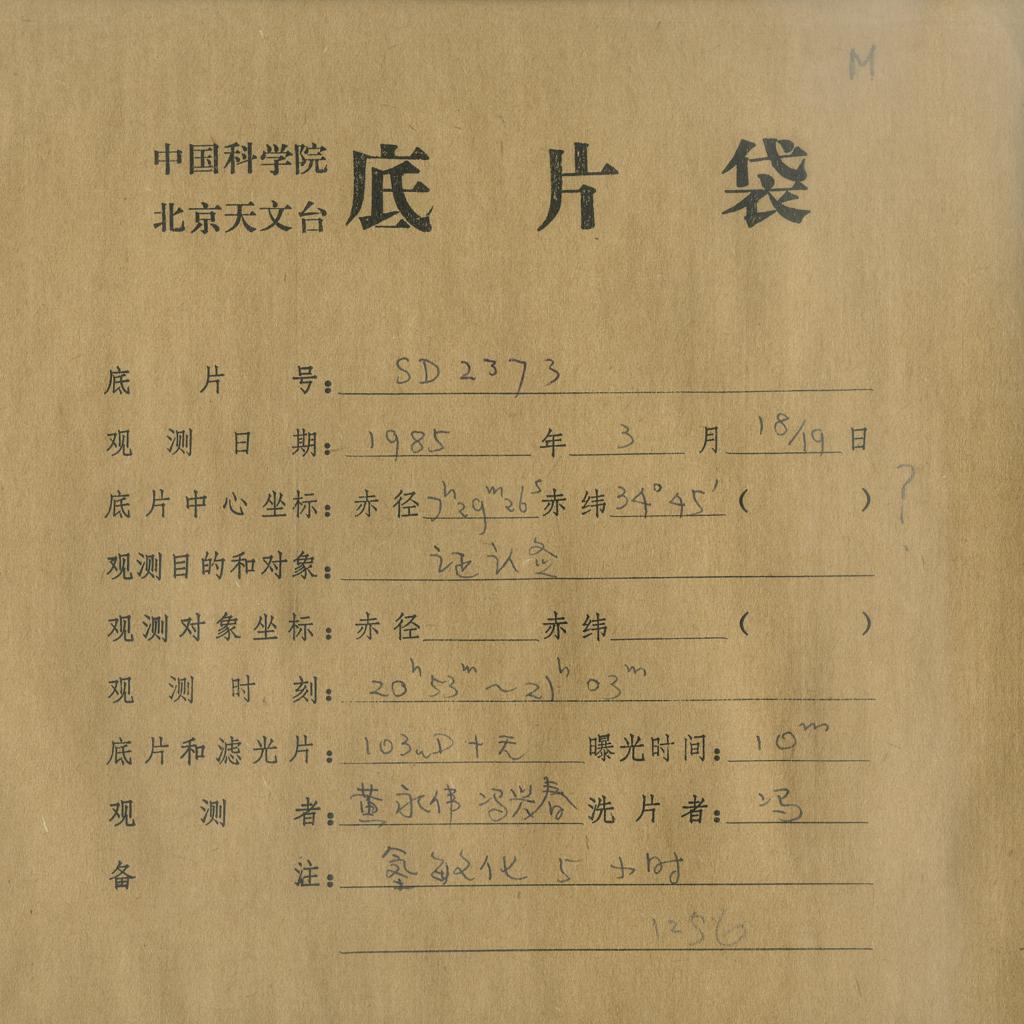 M
中国科学院
北京天文台
底片袋
底片号：SD2373
观测日期：1985年3月18/19日
底片中心坐标：赤径7h29m26s赤纬34°45′（ ）?
观测目的和对象：证认
观测对象坐标：赤径 赤纬 （ ）
观测时刻：20h53m～21h03m
底片和滤光片：103aD+无 曝光时间：10m
观测者：董永伟 冯兴春 洗片者：冯
备注：敏化 5 小时
1256